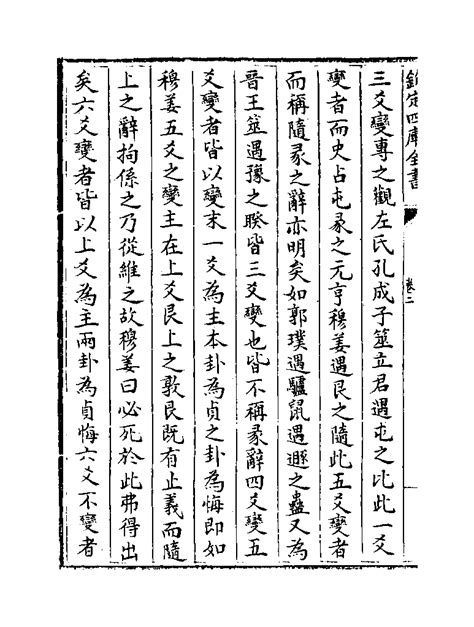 欽定四庫全書
卷二
三爻變專之觀左氏孔成子筮立君遇屯之比此一爻
變者而史占屯彖之元亨穆姜遇艮之隨此五爻變者
而稱隨彖之辭亦明矣如郭璞遇驢鼠遇遯之蠱又為
晉王筮遇豫之睽皆三爻變也皆不稱彖辭四爻變五
爻變者皆以變末一爻為主本卦為貞之卦為悔即如
穆姜五爻之變主在上爻艮上之敦艮既有止義而隨
上之辭拘係之乃從維之故穆姜曰必死於此弗得出
矣六爻變者皆以上爻為主兩卦為貞悔六爻不變者